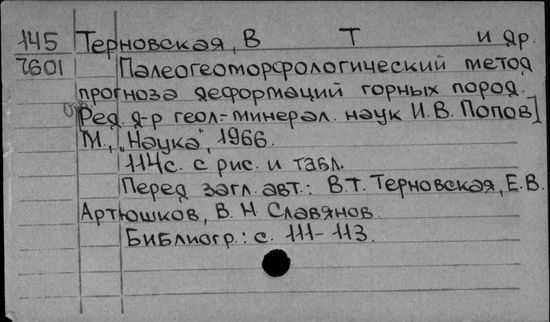 145 Терновская, В Т и др.
7601 Палеогеоморфологический метод
прогноза деформаций горных пород.
[Ред. д-р геол.-минерал. наук И.В. Попов]
М., "Наука", 1966.
114с. с рис. и табл.
Перед загл. авт.: В.Т. Терновская, Е.В.
Артюшков, В. Н Славянов.
Библиогр.: с. 111-113.